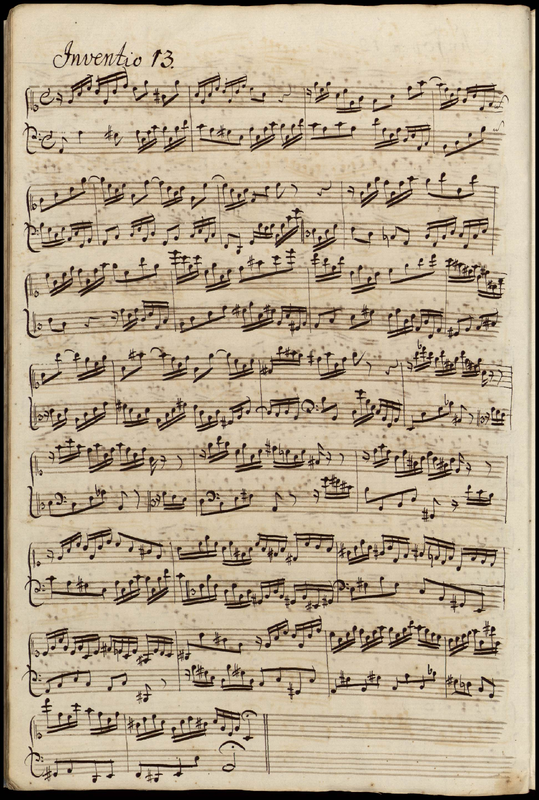 Inventio 13.